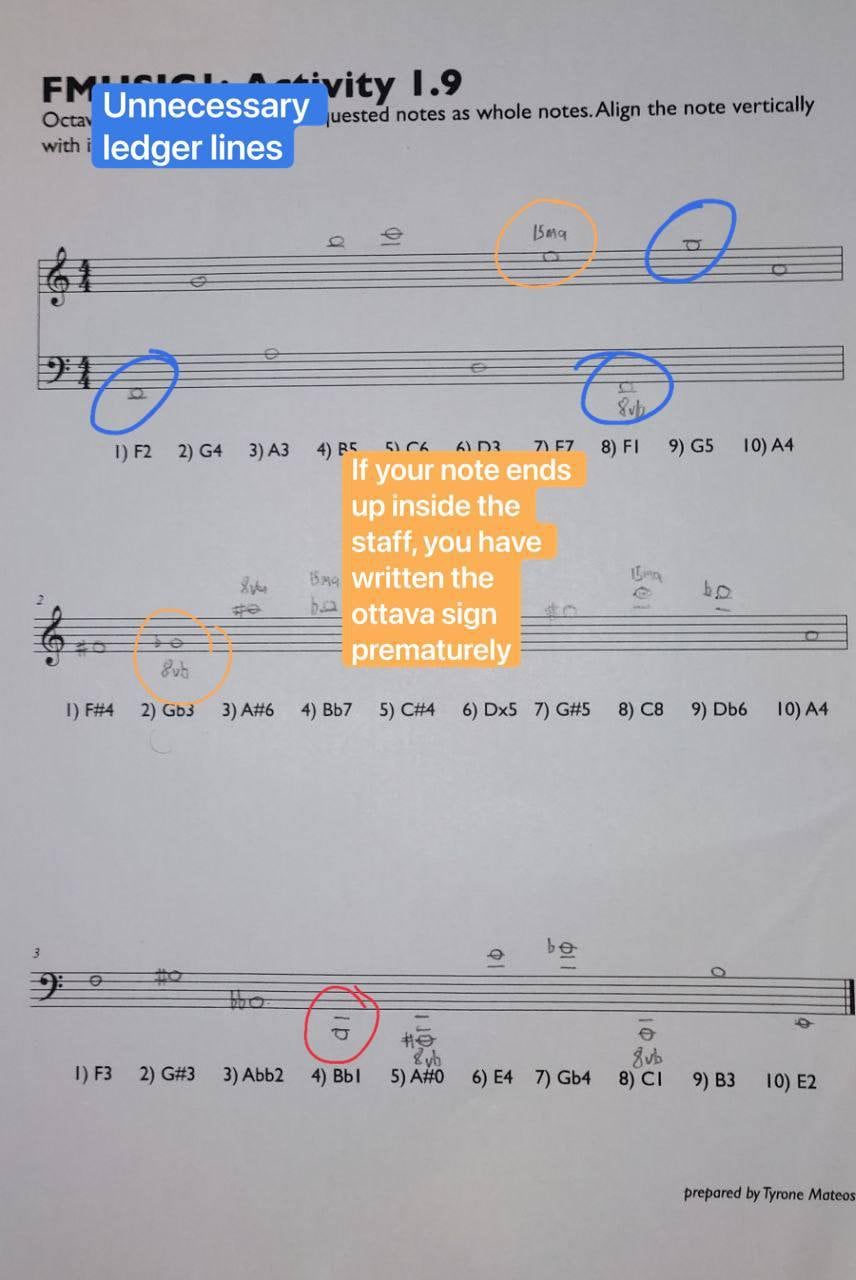 Activity 1.9
Unnecessary
ledger lines
Octav
quested notes as whole notes. Align the note vertically
with i
15ma
8vb
1) F2 2) G4 3) A3 4) B5 5) C6 6) D3 7) F7 8) F1 9) G5 10) A4
If your note ends
up inside the
staff, you have
written the
ottava sign
prematurely
2
8va 15ma 15ma
8vb
1) F#4 2) Gb3 3) A#6 4) Bb7 5) C#4 6) Dx5 7) G#5 8) C8 9) Db6 10) A4
3
8vb 8vb
1) F3 2) G#3 3) Abb2 4) Bb1 5) A#0 6) E4 7) Gb4 8) C1 9) B3 10) E2
prepared by Tyrone Mateos